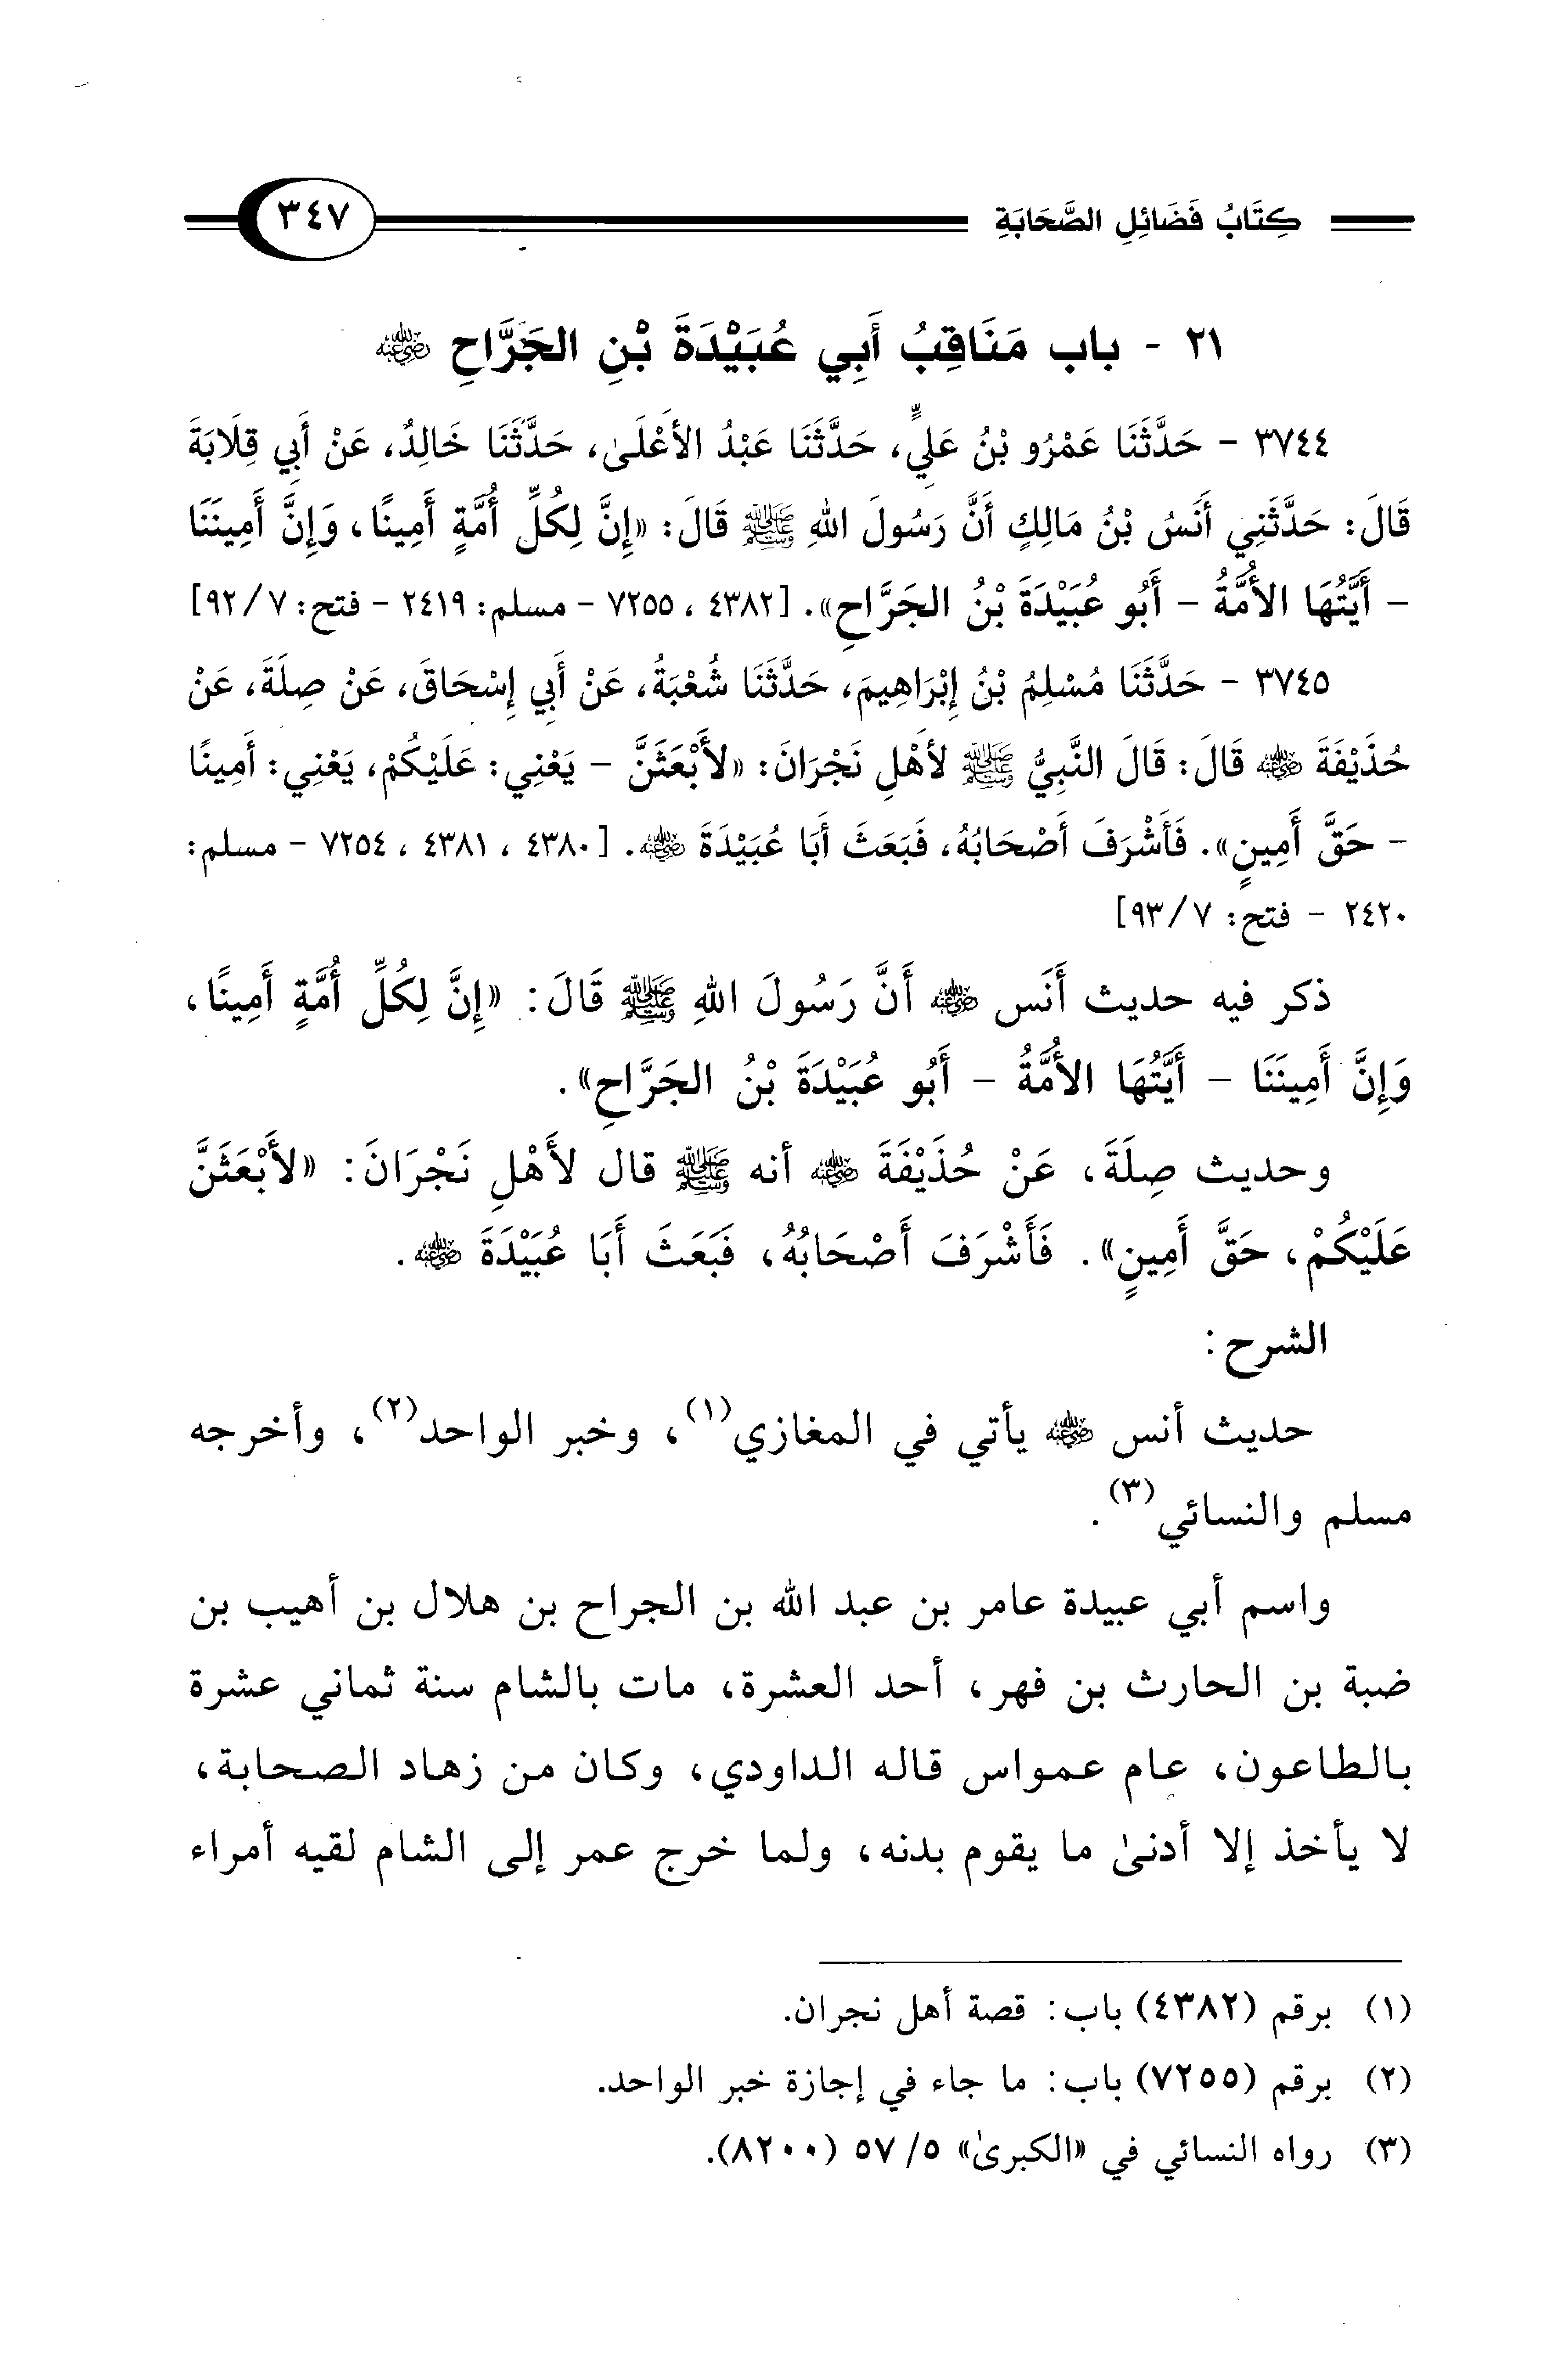 كِتَابُ فَضَائِلِ الصَّحَابَةِ ٣٤٧
٢١ - باب مَنَاقِبُ أَبِي عُبَيْدَةَ بْنِ الجَرَّاحِ رضي الله عنه
٣٧٤٤ - حَدَّثَنَا عَمْرُو بْنُ عَلِيٍّ، حَدَّثَنَا عَبْدُ الأَعْلَىٰ، حَدَّثَنَا خَالِدٌ، عَنْ أَبِي قِلَابَةَ
قَالَ: حَدَّثَنِي أَنَسُ بْنُ مَالِكٍ أَنَّ رَسُولَ اللهِ ﷺ قَالَ: «إِنَّ لِكُلِّ أُمَّةٍ أَمِينًا، وَإِنَّ أَمِينَنَا
- أَيَّتُهَا الأُمَّةُ - أَبُو عُبَيْدَةَ بْنُ الجَرَّاحِ». [٤٣٨٢ ، ٧٢٥٥ - مسلم: ٢٤١٩ - فتح: ٧/ ٩٢]
٣٧٤٥ - حَدَّثَنَا مُسْلِمُ بْنُ إِبْرَاهِيمَ، حَدَّثَنَا شُعْبَةُ، عَنْ أَبِي إِسْحَاقَ، عَنْ صِلَةَ، عَنْ
حُذَيْفَةَ رضي الله عنه قَالَ: قَالَ النَّبِيُّ ﷺ لأَهْلِ نَجْرَانَ: «لأَبْعَثَنَّ - يَعْنِي: عَلَيْكُمْ، يَعْنِي: أَمِينًا
- حَقَّ أَمِينٍ». فَأَشْرَفَ أَصْحَابُهُ، فَبَعَثَ أَبَا عُبَيْدَةَ رضي الله عنه. [٤٣٨٠ ، ٤٣٨١ ، ٧٢٥٤ - مسلم:
٢٤٢٠ - فتح: ٧/ ٩٣]
ذكر فيه حديث أَنَس رضي الله عنه أَنَّ رَسُولَ اللهِ ﷺ قَالَ: «إِنَّ لِكُلِّ أُمَّةٍ أَمِينًا،
وَإِنَّ أَمِينَنَا - أَيَّتُهَا الأُمَّةُ - أَبُو عُبَيْدَةَ بْنُ الجَرَّاحِ».
وحديث صِلَةَ، عَنْ حُذَيْفَةَ رضي الله عنه أنه ﷺ قال لأَهْلِ نَجْرَانَ: «لأَبْعَثَنَّ
عَلَيْكُمْ، حَقَّ أَمِينٍ». فَأَشْرَفَ أَصْحَابُهُ، فَبَعَثَ أَبَا عُبَيْدَةَ رضي الله عنه.
الشرح:
حديث أنس رضي الله عنه يأتي في المغازي(١)، وخبر الواحد(٢)، وأخرجه
مسلم والنسائي(٣).
واسم أبي عبيدة عامر بن عبد الله بن الجراح بن هلال بن أهيب بن
ضبة بن الحارث بن فهر، أحد العشرة، مات بالشام سنة ثماني عشرة
بالطاعون، عام عمواس قاله الداودي، وكان من زهاد الصحابة،
لا يأخذ إلا أدنىٰ ما يقوم بدنه، ولما خرج عمر إلى الشام لقيه أمراء
(١) برقم (٤٣٨٢) باب: قصة أهل نجران.
(٢) برقم (٧٢٥٥) باب: ما جاء في إجازة خبر الواحد.
(٣) رواه النسائي في «الكبرىٰ» ٥/ ٥٧ (٨٢٠٠).